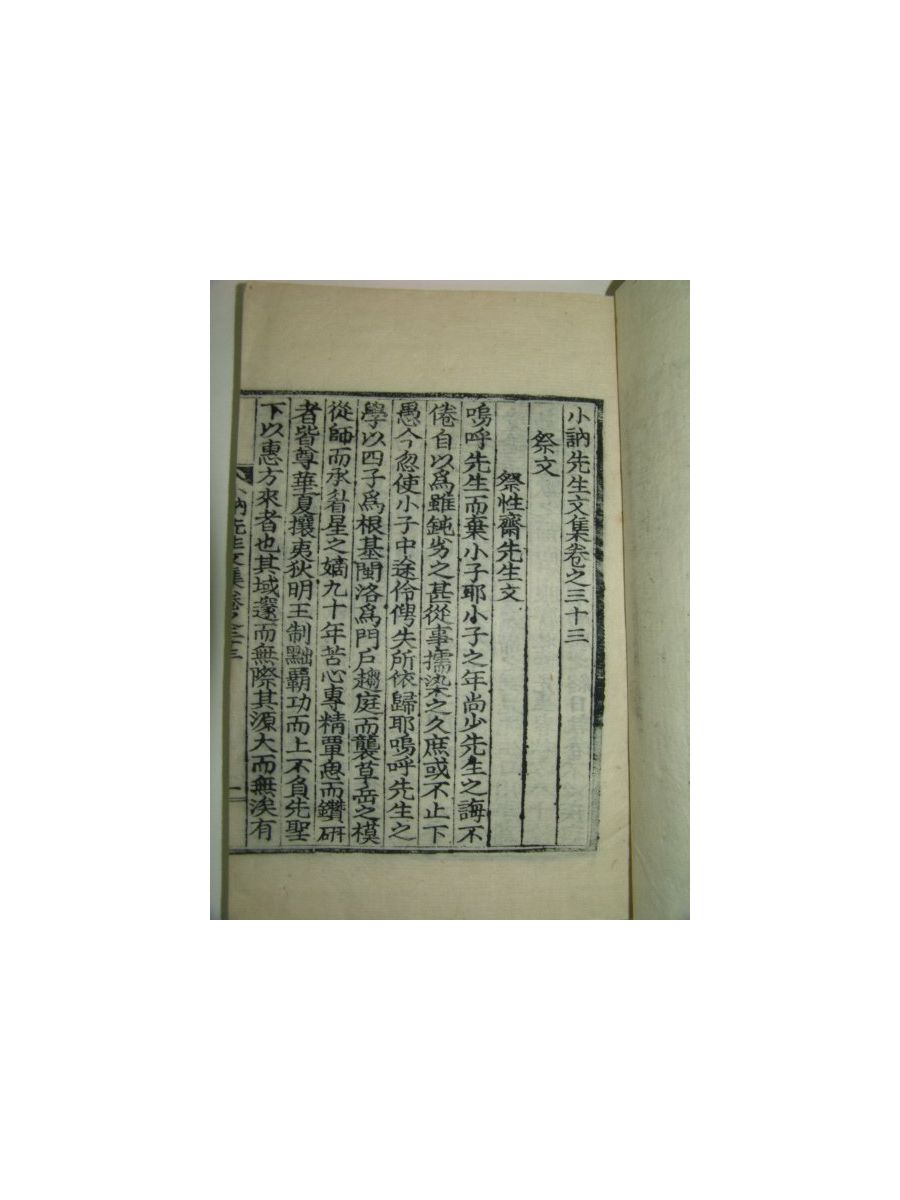 小訥先生文集卷之三十三
祭文
祭性齋先生文
嗚呼先生而棄小子耶小子之年尚少先生之誨不
倦自以爲雖鈍劣之甚從事擩染之久庶或不止下
愚今忽使小子中途伶俜失所依歸耶嗚呼先生之
學以四子爲根基閩洛爲門戶趨庭而襲草岳之模
從師而承眉星之嫡九十年苦心專精覃思而鑽硏
者皆尊華夏攘夷狄明王制黜覇功而上不負先聖
下以惠方來者也其域邃而無際其源大而無涘有
訥先生文集卷之三十三
一